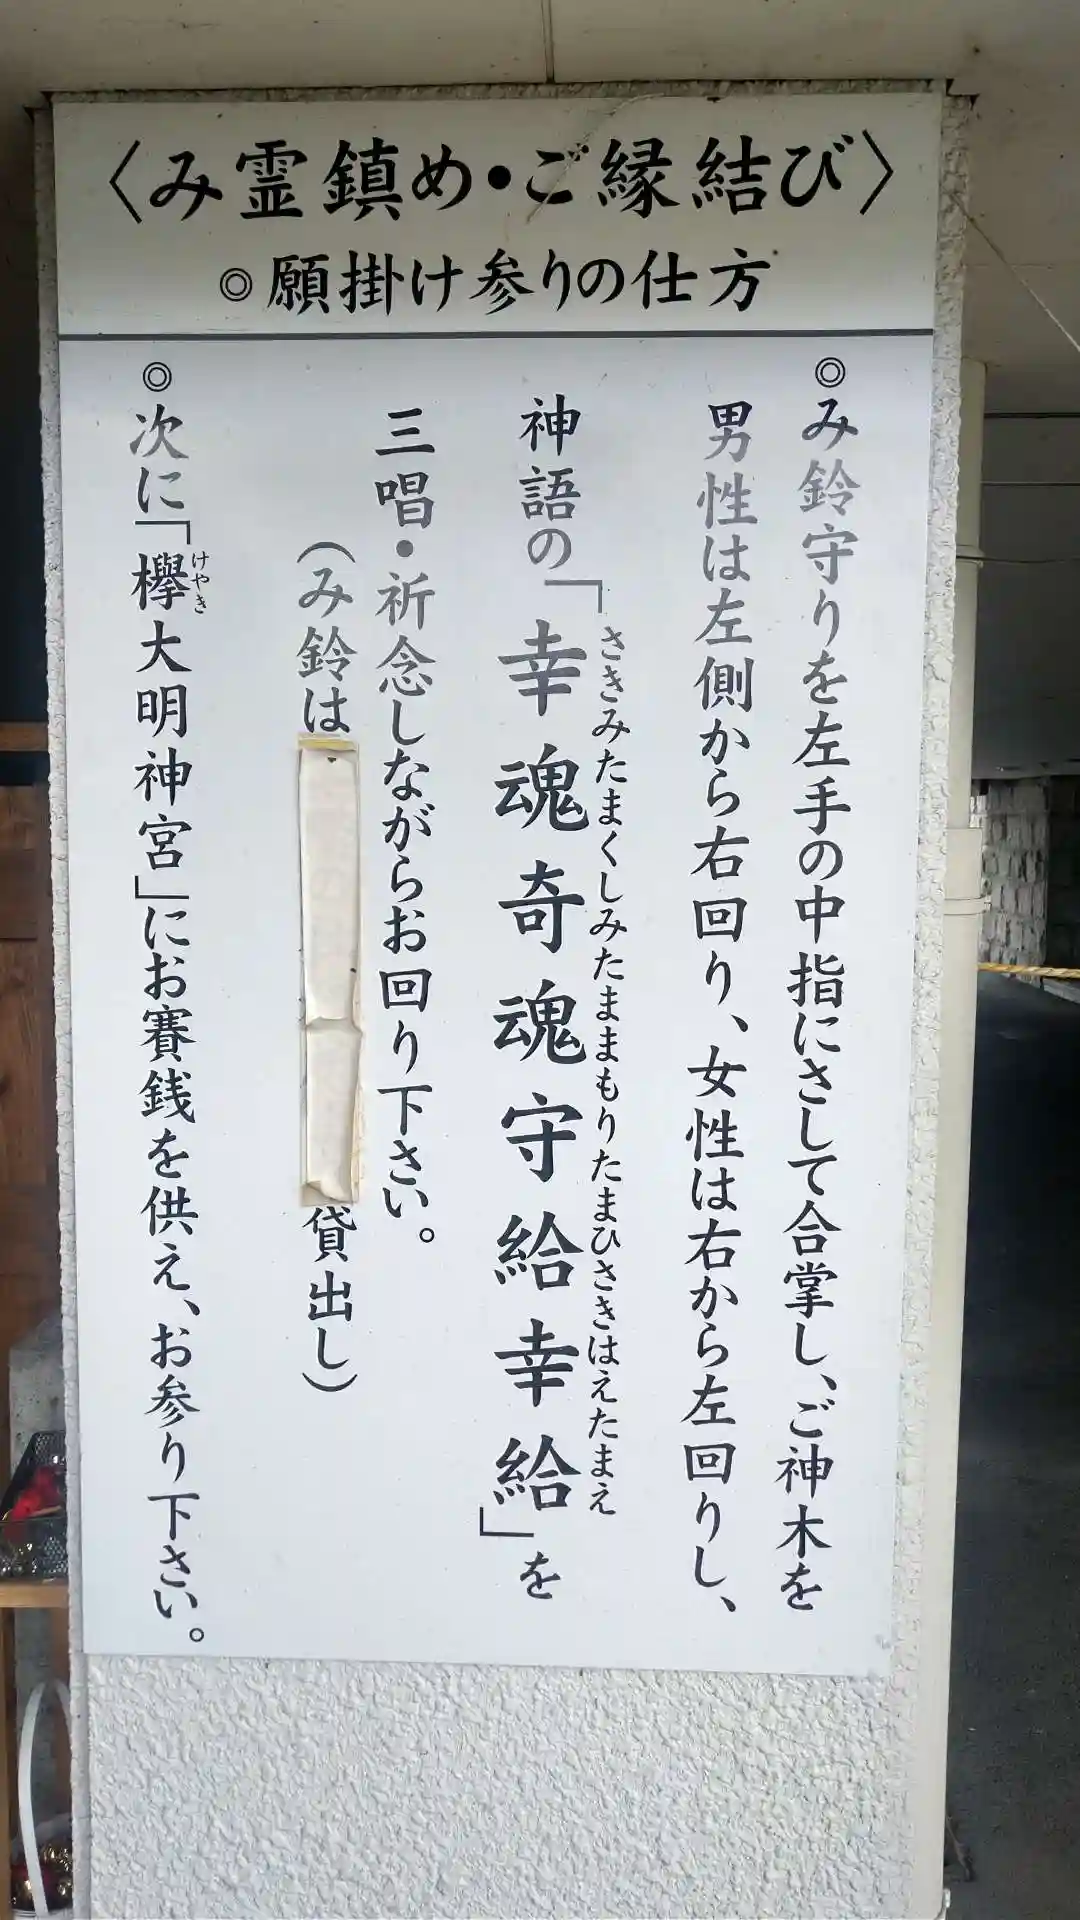 〈み霊鎮め・ご縁結び〉
◎願掛け参りの仕方
◎み鈴守りを左手の中指にさして合掌し、ご神木を
男性は左側から右回り、女性は右から左回りし、
神語の「幸魂奇魂守給幸給」を
さきみたまくしみたままもりたまひさきはえたまえ
三唱・祈念しながらお回り下さい。
(み鈴は
貸出し)
◎次に「欅大明神宮」にお賽銭を供え、お参り下さい。
けやき